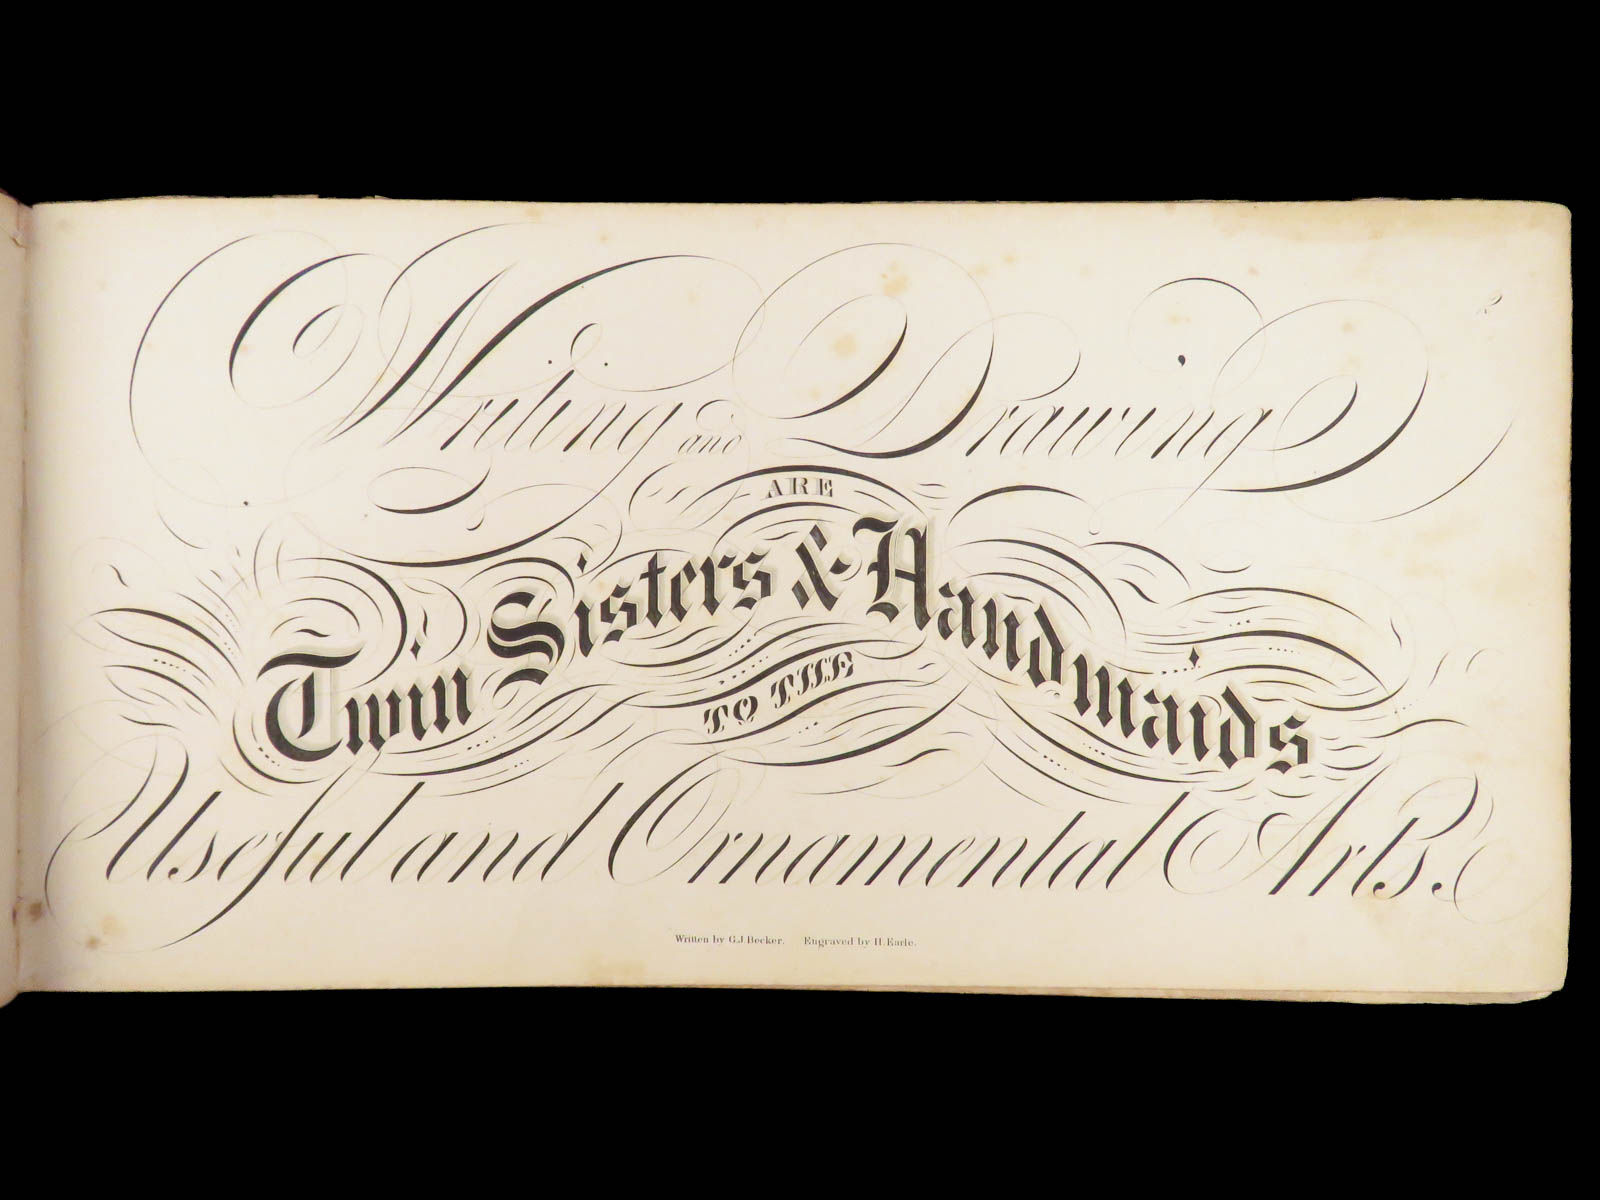 2
Writing and Drawing
ARE
Twin Sisters & Handmaids
TO THE
Useful and Ornamental Arts.
Written by G.J. Becker. Engraved by H. Earle.